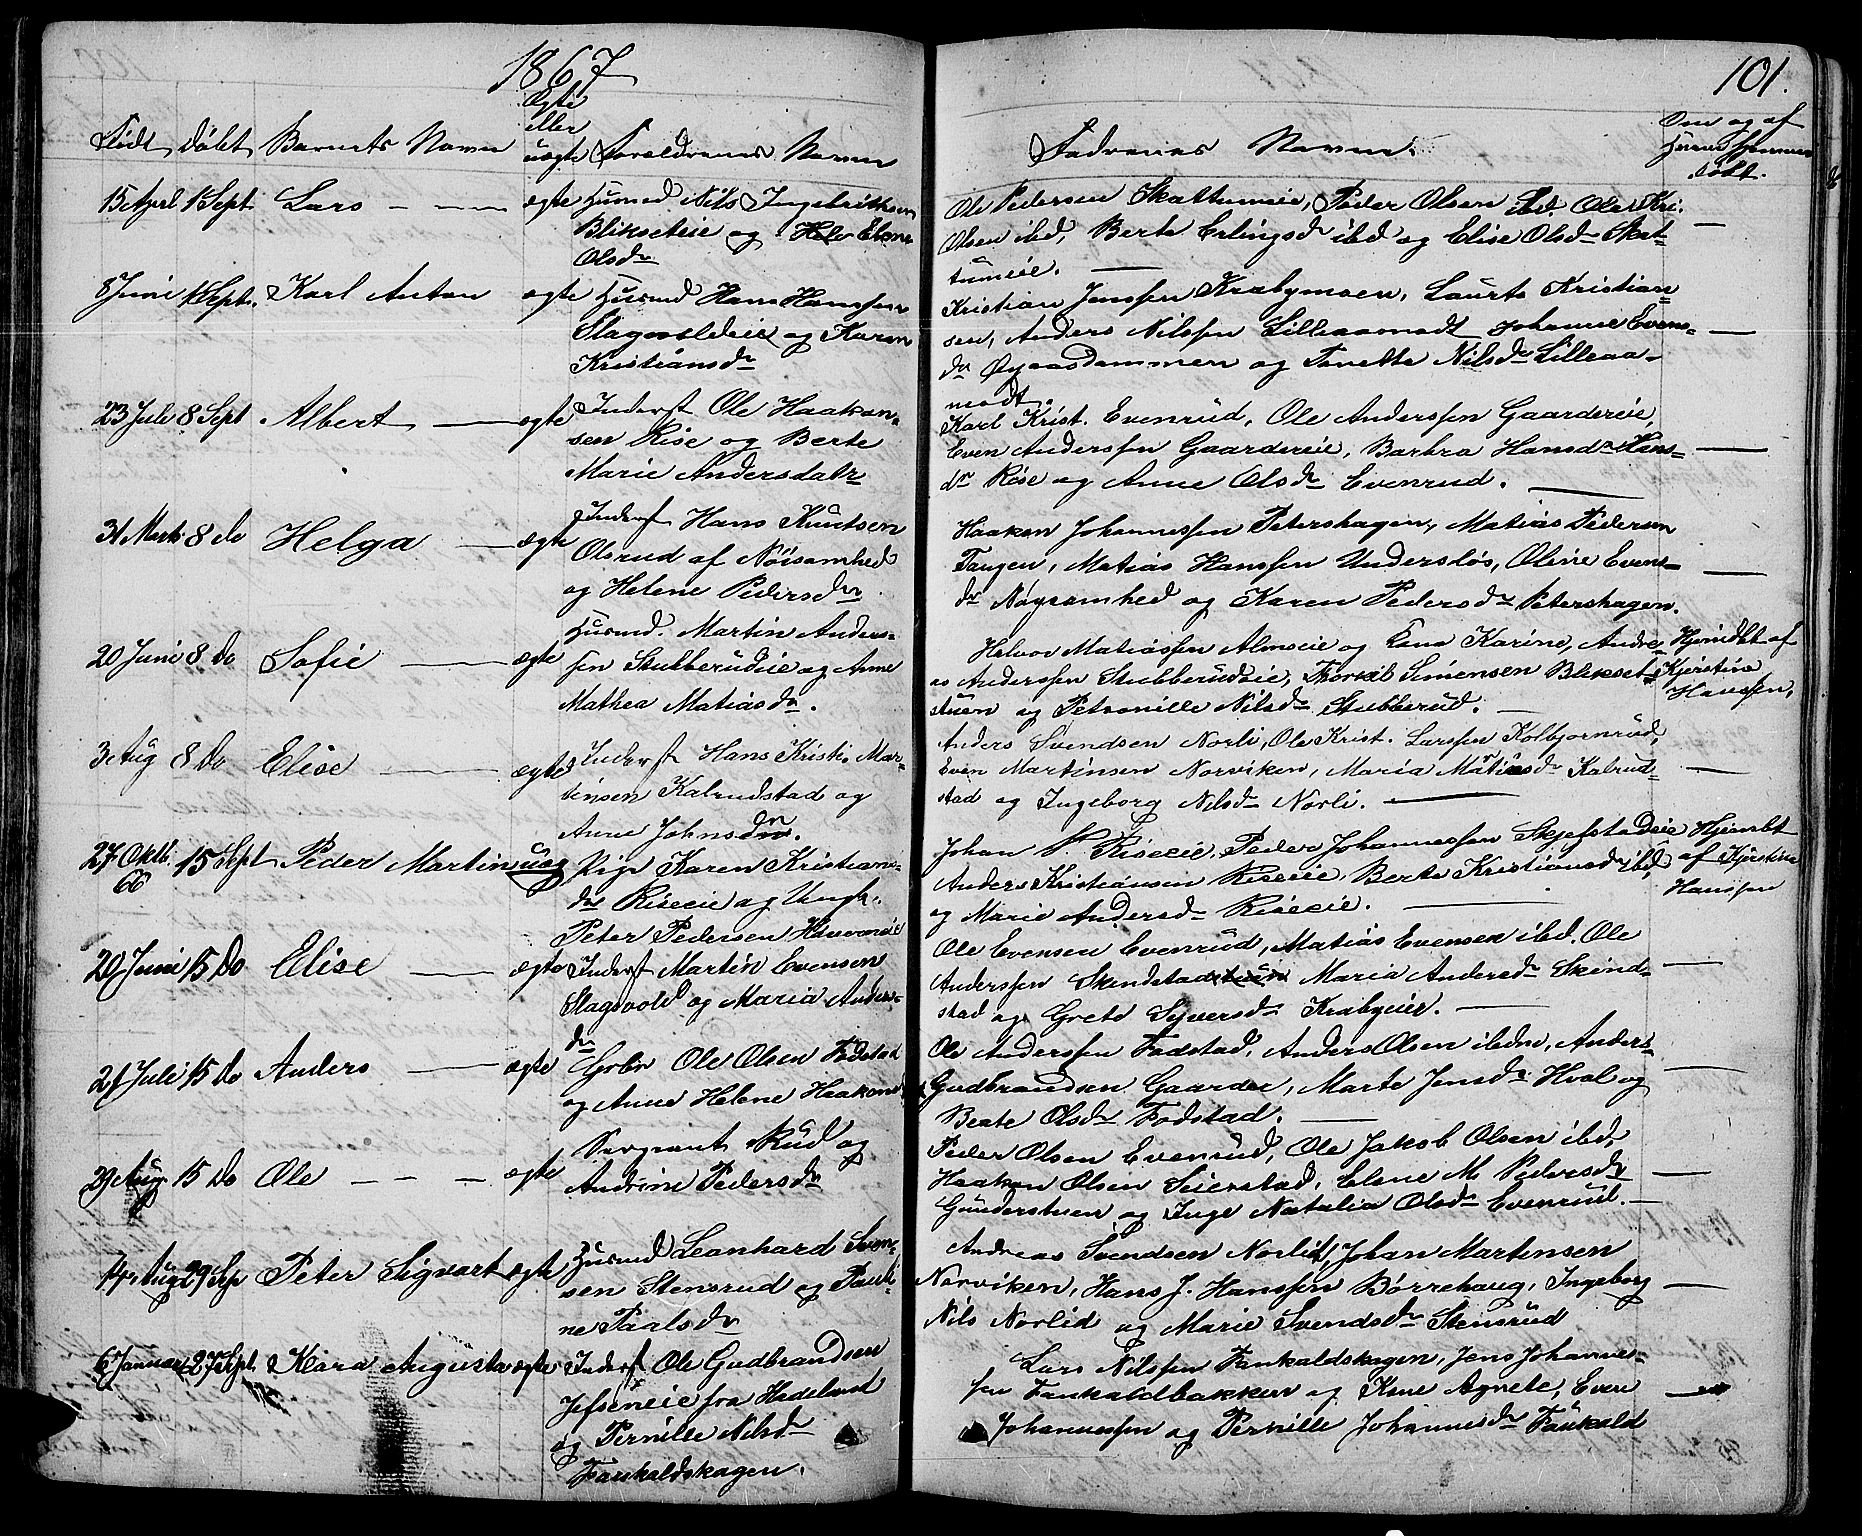 1867
101.
Født Døbt Barnets Navn Ægte eller uægte Forældrenes Navn
Fadrenes Navn.
Om og af hvem hjemmedøbt.
15 April 1 Sept Lars — ægte Husmd Nils Ingebrithsen
Blikseteie og Elene
Olsdr
Ole Pedersen Skattumeie, Peder Olsen ibd. Ole Kri.
Olsen ibd, Berte Erlingsdr ibd og Elise Olsdr Skat-
tumeie. —
8 Juni 1 Sept. Karl Anton ægte Husmd Hans Hanssen
Slagvoldeie og Karen
Kristiansdr
Kristian Jenssen Krabymoen, Laurts Kristian-
sen, Anders Nilssen Lilleaamodt Johanne Evens-
dr Øgaasdammen og Tonette Nilsdr Lilleaa-
modt.
23 Juli 8 Sept Albert — ægte Inderst Ole Haakon-
sen Rise og Berte
Marie Andersdatr
Karl Krist. Evenrud, Ole Anderssen Gaardereie,
Even Anderssen Gaardereie, Barbra Hansdr Hans-
dr Rise og Anne Olsdr Evenrud. —
31 Marts 8 do Helga — ægte Inderst Hans Knutsen
Olsrud af Nöisomhed
og Helene Pedersdr
Haaken Johannessen Petershagen, Matias Pedersen
Tangen, Matias Hanssen Undersløs, Oline Evens-
dr Nøysomhed og Karen Pedersdr Petershagen.
20 Juni 8 Do Sofie — ægte Husmd. Martin Anders-
sen Stubberudeie og Anne
Mathea Matiasdr.
Helvor Matiassen Almseie og Karine, Andre-
as Anderssen Stubberudeie, Torvil Simensen Blikset-
stuen og Petronille Nilsdr Stubberud. —
Hjemdbt af
Kjerstina
Hanssen,
3 Aug 8 Do Elise — ægte Inderst Hans Kristi. Mar-
tinsen Kalrudstad og
Anne Johnsdr.
Anders Svendsen Norli, Ole Krist. Larssen Kolbjornrud,
Even Martinsen Norviken, Maria Matiasdr Kalrud-
stad og Ingeborg Nilsdr Norli. —
27 Oktb. 66 15 Sept Peder Martin uæg Pige Karen Kristians-
dr Riseeie og Ungk.
Peter Pedersen
Johan P. Riseeie, Peder Johannessen Skjefstadeie
Anders Kristiansen Riseeie, Berte Kristiansdr ibd,
og Marie Andersdr Riseeie. —
Hjembt
af Kjerstina
Hanssen
20 Juni 15 Do Elise — ægte Inderst Martin Evensen
Slagsvold og Maria Anders-
dr
Ole Evensen Evenrud, Matias Evensen ibd. Ole
Anderssen Skindstad Maria Andersdr Skind-
stad og Grete Syversdr Krabyeie. —
21 Juli 15 Do Anders — ægte Gbr Ole Olsen Fodstad
og Anne Helene Haakonsd
Ole Anderssen Fodstad, Anders Olsen ibdne, Anders
Gudbrandsen Gaarder, Marte Jensdr Hval og
Beate Olsdr Fodstad. —
29 Aug 15 Do Ole — — — ægte Sergeant Rud og
Andrine Pedersdr
Peder Olsen Evenrud, Ole Jakob Olsen ibd,
Haaken Olsen Seierstad, Elene M. Pedersdr
Gunderstuen og Inge Natalia Olsdr Evenrud. —
14 Aug 29 Sep Peter Sigvart ægte Husmd Leonhard Sven-
sen Stensrud og Pauli-
ne Paalsdr
Andreas Svendsen Norlid, Johan Martinsen
Norviken, Hans J. Hanssen Børrehaug, Ingeborg
Nils Norlid og Marie Svendsdr Stensrud
6 Januar 27 Sept Klara Augusta ægte Inderst Ole Gudbrandsen
Jefseneie fra Hadeland
og Pernille Nilsdr
Faukaldskagen.
Lars Nilssen Faukaldskagen, Jens Johannes-
sen Faukaldbakken og Kone Agnete, Even
Johannessen og Pernille Johannesdr Faukald